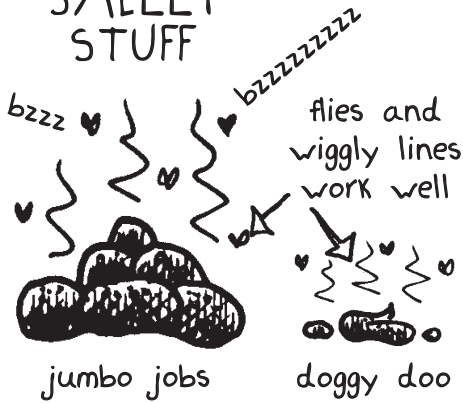 STUFF
bzzzzzzzzzz
bzzz
flies and
wiggly lines
work well
jumbo jobs
doggy doo